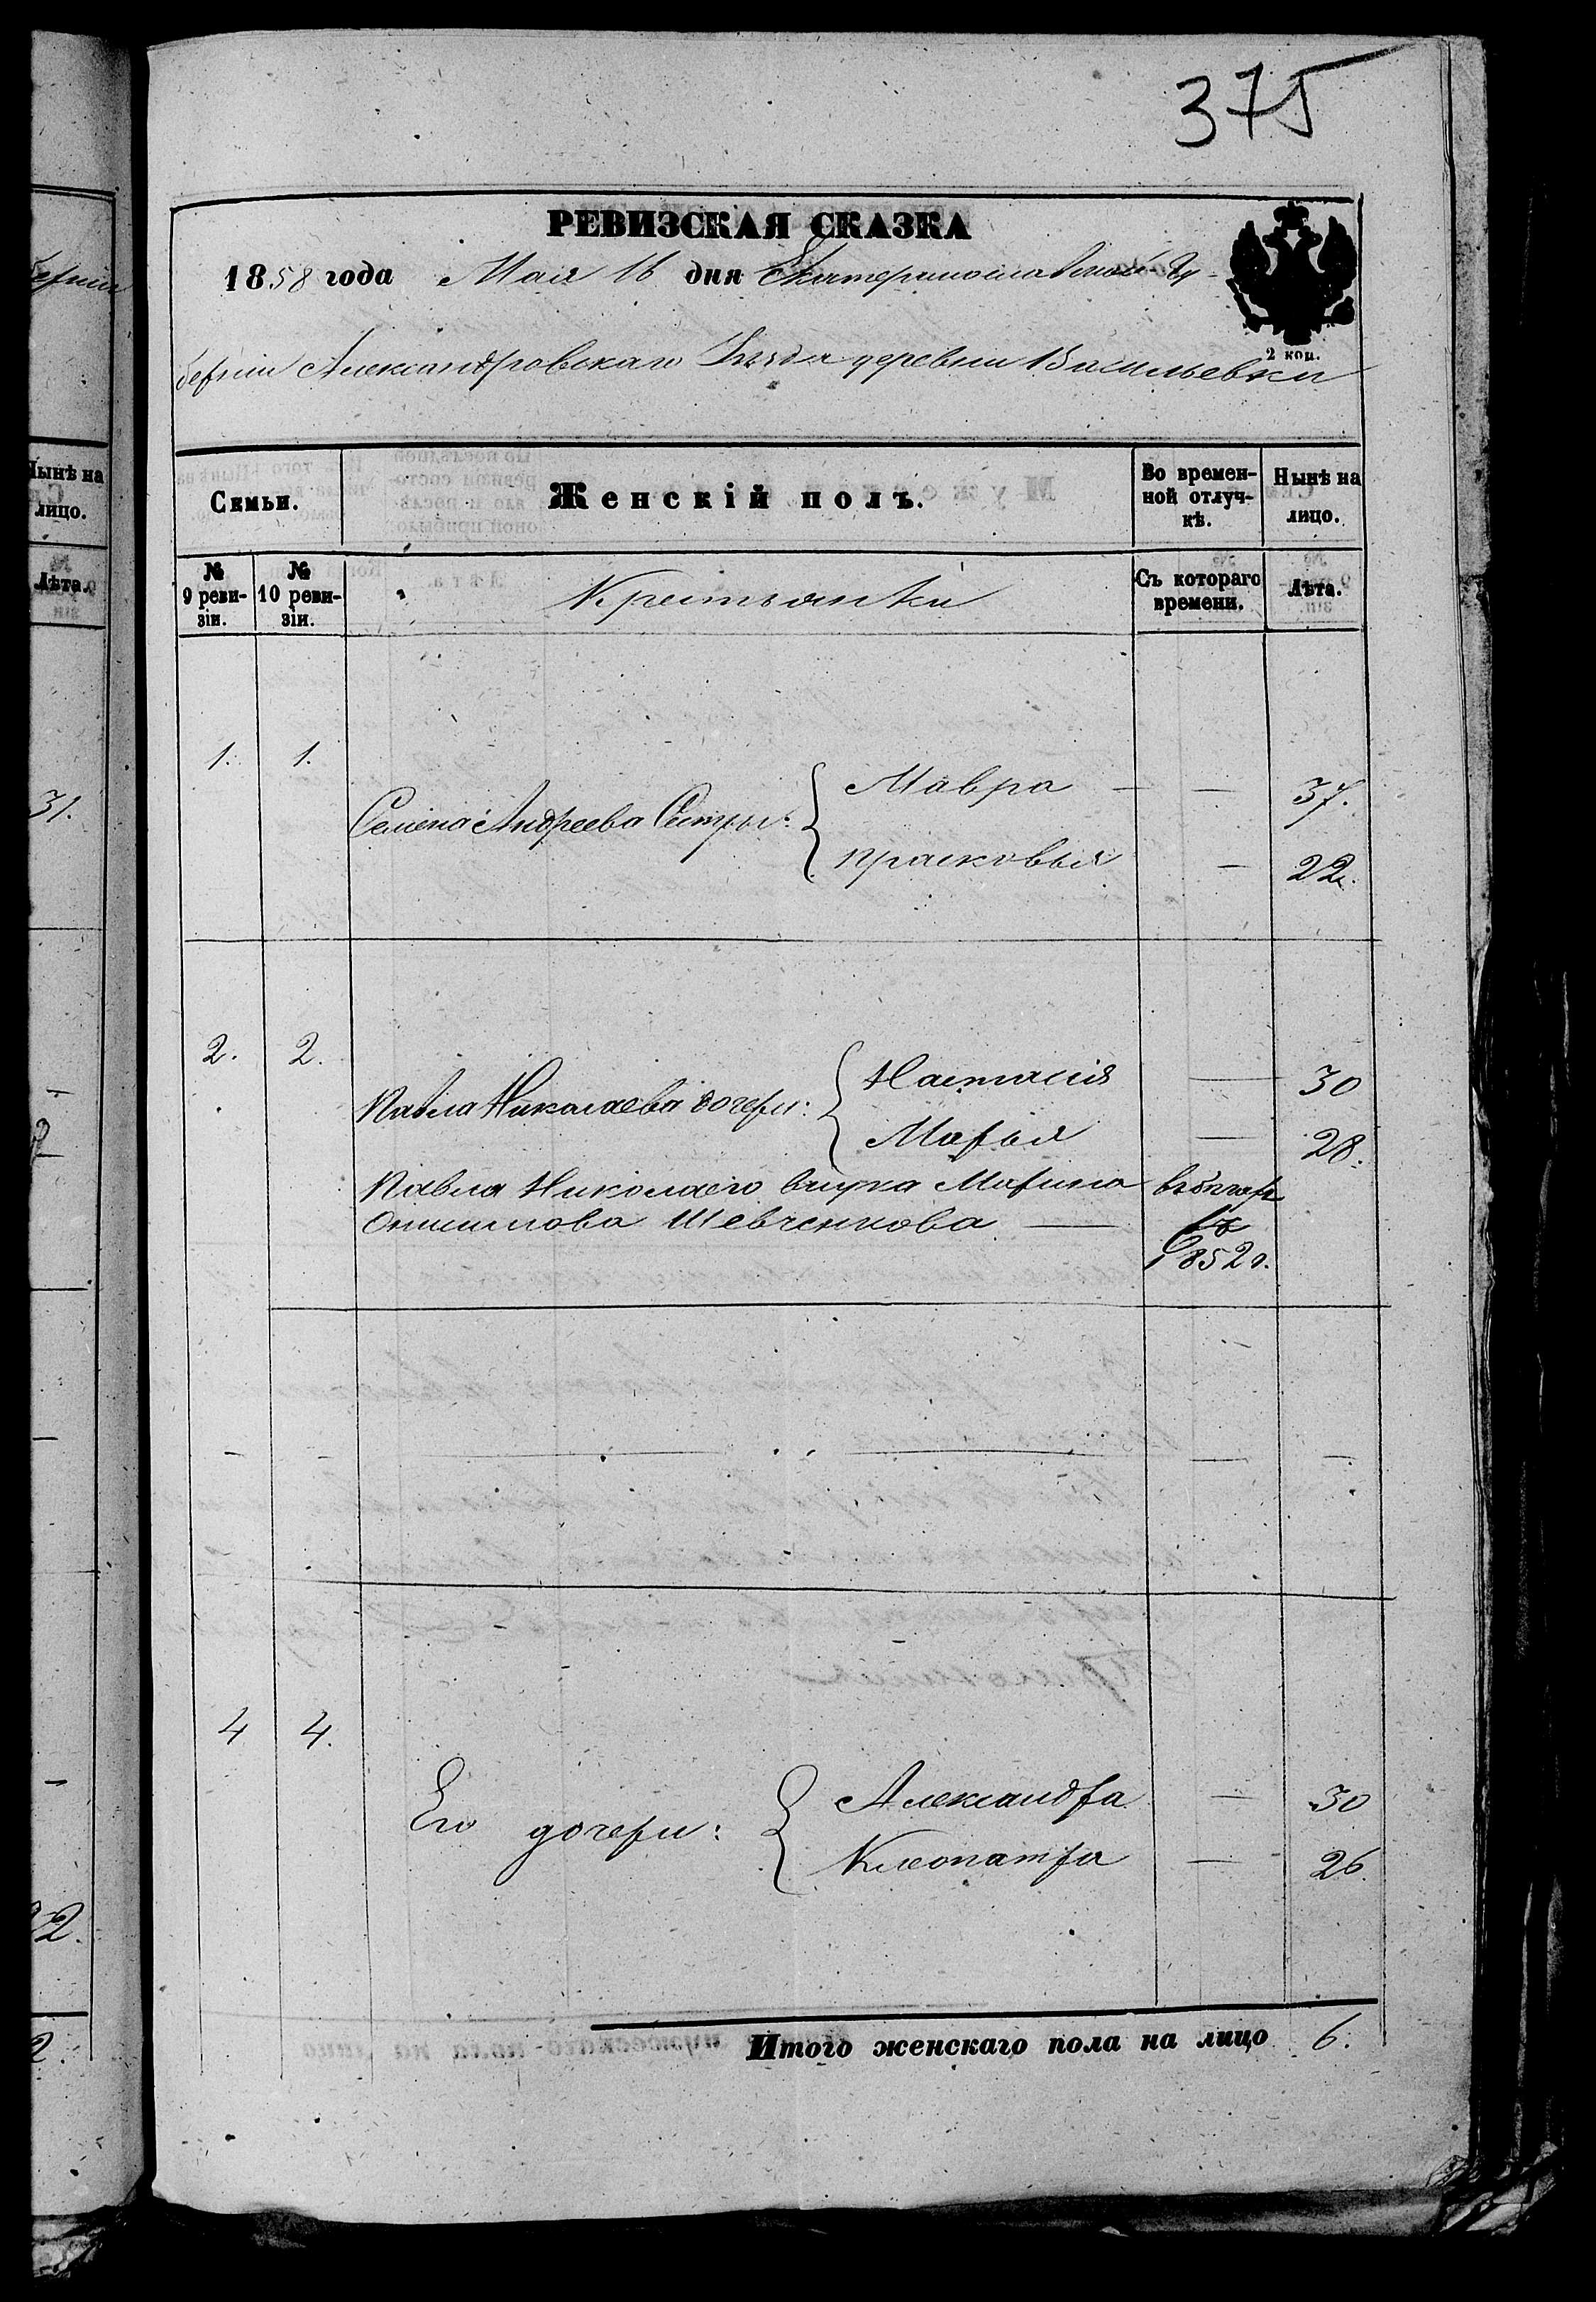 375
РЕВИЗСКАЯ СКАЗКА
1858 года Мая 16 дня Екатеринославской Гу-
берніи Александровскаго Уѣзда деревни Васильевки
2 коп.
Семьи. Женскій полъ. Во времен-ной отлуч-кѣ. Нынѣ на лицо.
№ 9 реви-зіи. № 10 реви-зіи. Крестьянки Съ котораго времени. Лѣта.
1. 1.
Семена Андреева Сестры: Мавра — 37.
Прасковья — 22.
2. 2.
Павла Николаева дочери: Настасія — 30
Марья — 28.
Павла Николаего внука Марина въ бѣгах
Онисимова Шевченкова — Съ
1852г.
4 4.
Его дочери: Александра — 30
Клеопатра — 26.
Итого женскаго пола на лицо 6.
берніи
Нынѣ на
лицо.
Лѣта.
31.
22.
2.